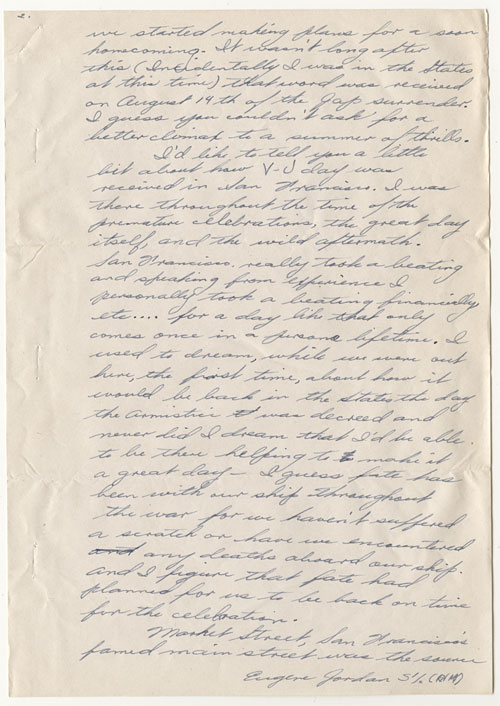 2.
we started making plans for a soon
homecoming. It wasn't long after
this (Incidentally I was in the States
at this time) that word was received
on August 14th of the Jap surrender.
I guess you couldn't ask for a
better climax to a summer of thrills.
I'd like to tell you a little
bit about how V-J day was
received in San Francisco. I was
there throughout the time of the
premature celebrations, the great day
itself, and the wild aftermath.
San Francisco really took a beating
and speaking from experience I
personally took a beating financially
etc.... for a day like that only
comes once in a persons lifetime. I
used to dream, while we were out
here, the first time, about how it
would be back in the states the day
the armistice was decreed and
never did I dream that I'd be able
to be there helping to make it
a great day - I guess fate has
been with our ship throughout
the war for we haven't suffered
a scratch or have we encountered
and any deaths aboard our ship.
and I figure that fate had
planned for us to be back on time
for the celebration.
Market Street, San Francisco's
famed main street was the
Eugene Jordan S 1/c